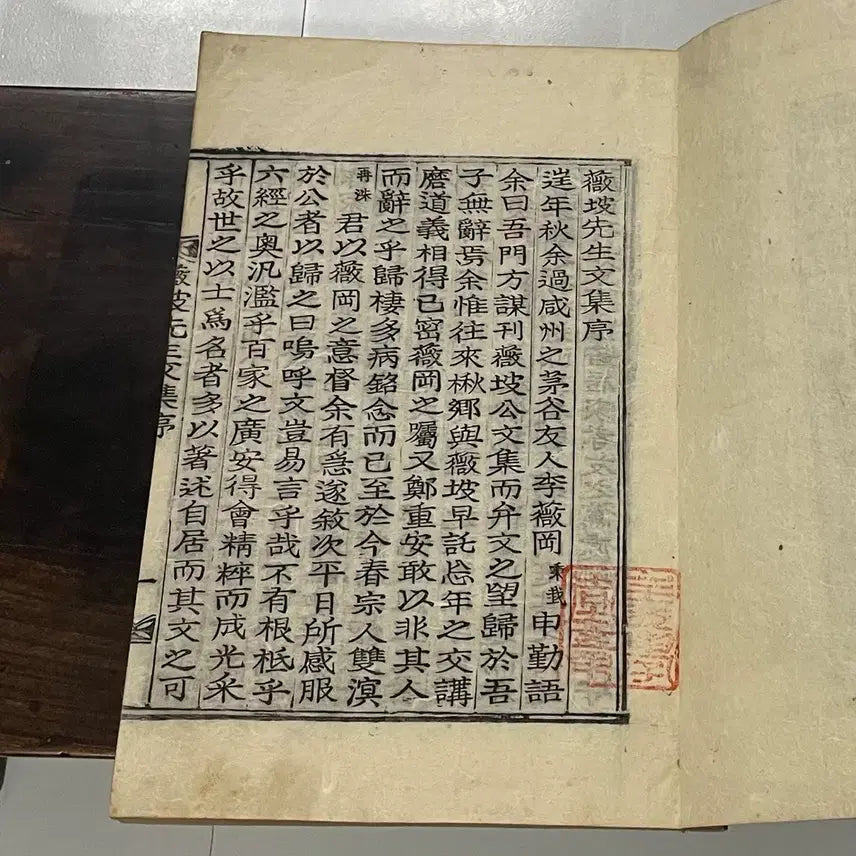 薇坡先生文集序
逞年秋余過咸州之茅谷友人李薇岡秉戣申勤語
余曰吾門方謀刊薇坡公文集而弁文之望歸於吾
子無辭焉余惟往來楸鄕與薇坡早託忘年之交講
磨道義相得已密薇岡之囑又鄭重安敢以非其人
而辭之乎歸棲多病銘念而已至於今春宗人雙溟
再洙君以薇岡之意督余有急遂敘次平日所感服
於公者以歸之曰嗚呼文豈易言乎哉不有根柢乎
六經之奧汎濫乎百家之廣安得會精粹而成光采
乎故世之以士爲名者多以著述自居而其文之可
薇坡先生文集序
一